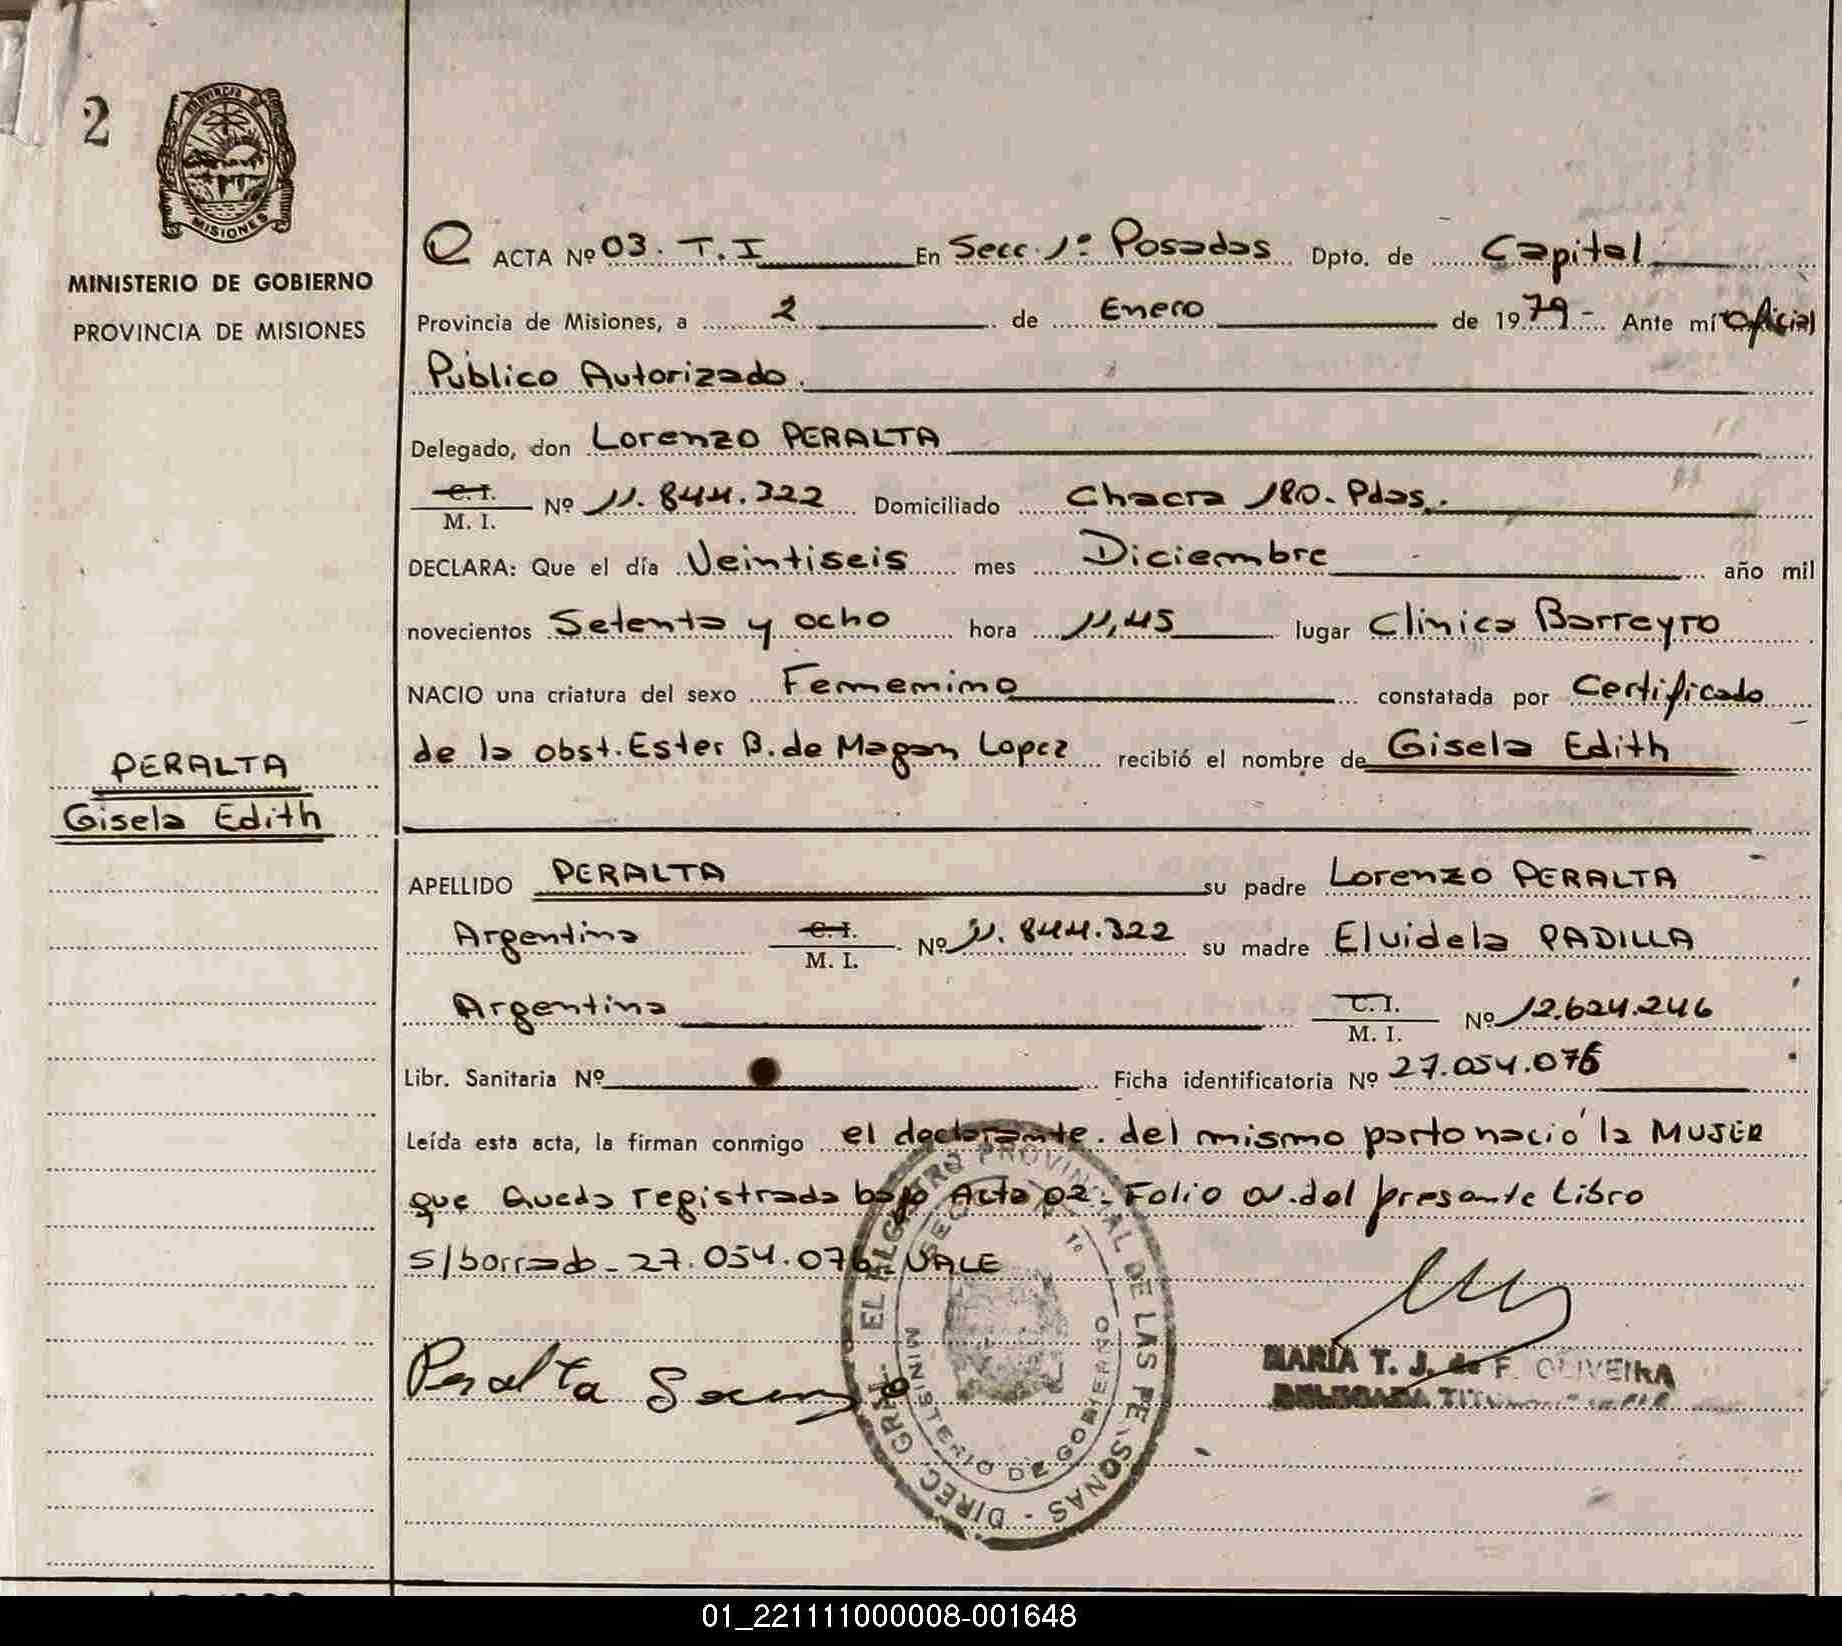 2
PROVINCIA DE
MISIONES
MINISTERIO DE GOBIERNO
PROVINCIA DE MISIONES
ACTA Nº 03. T.I En Secc. 1º Posadas Dpto. de Capital
Provincia de Misiones, a 2 de Enero de 1979- Ante mí Oficial
Público Autorizado.
Delegado, don Lorenzo PERALTA
C.I.
M. I. Nº 11.844.322 Domiciliado Chacra 180. Pdas.
DECLARA: Que el día Veintiseis mes Diciembre año mil
novecientos Setenta y ocho hora 11,45 lugar Clinica Barreyro
NACIO una criatura del sexo Femenino constatada por Certificado
de la obst. Ester B. de Magan Lopez recibió el nombre de Gisela Edith
PERALTA
Gisela Edith
APELLIDO PERALTA su padre Lorenzo PERALTA
Argentina C.I.
M. I. Nº 11.844.322 su madre Elvidela PADILLA
Argentina C.I.
M. I. Nº 12.624.246
Libr. Sanitaria Nº Ficha identificatoria Nº 27.054.076
Leída esta acta, la firman conmigo el declarante. del mismo parto nació la MUJER
que Queda registrada bajo Acta 02- Folio 01. del presente Libro
S/borrado- 27.054.076- VALE
Peralta Lorenzo
DIREC. GRAL. DEL REGISTRO PROVINCIAL DE LAS PERSONAS
SECC 1º
MINISTERIO DE GOBIERNO
MARIA T. J. de F. OLIVEIRA
DELEGADA
01_221111000008-001648